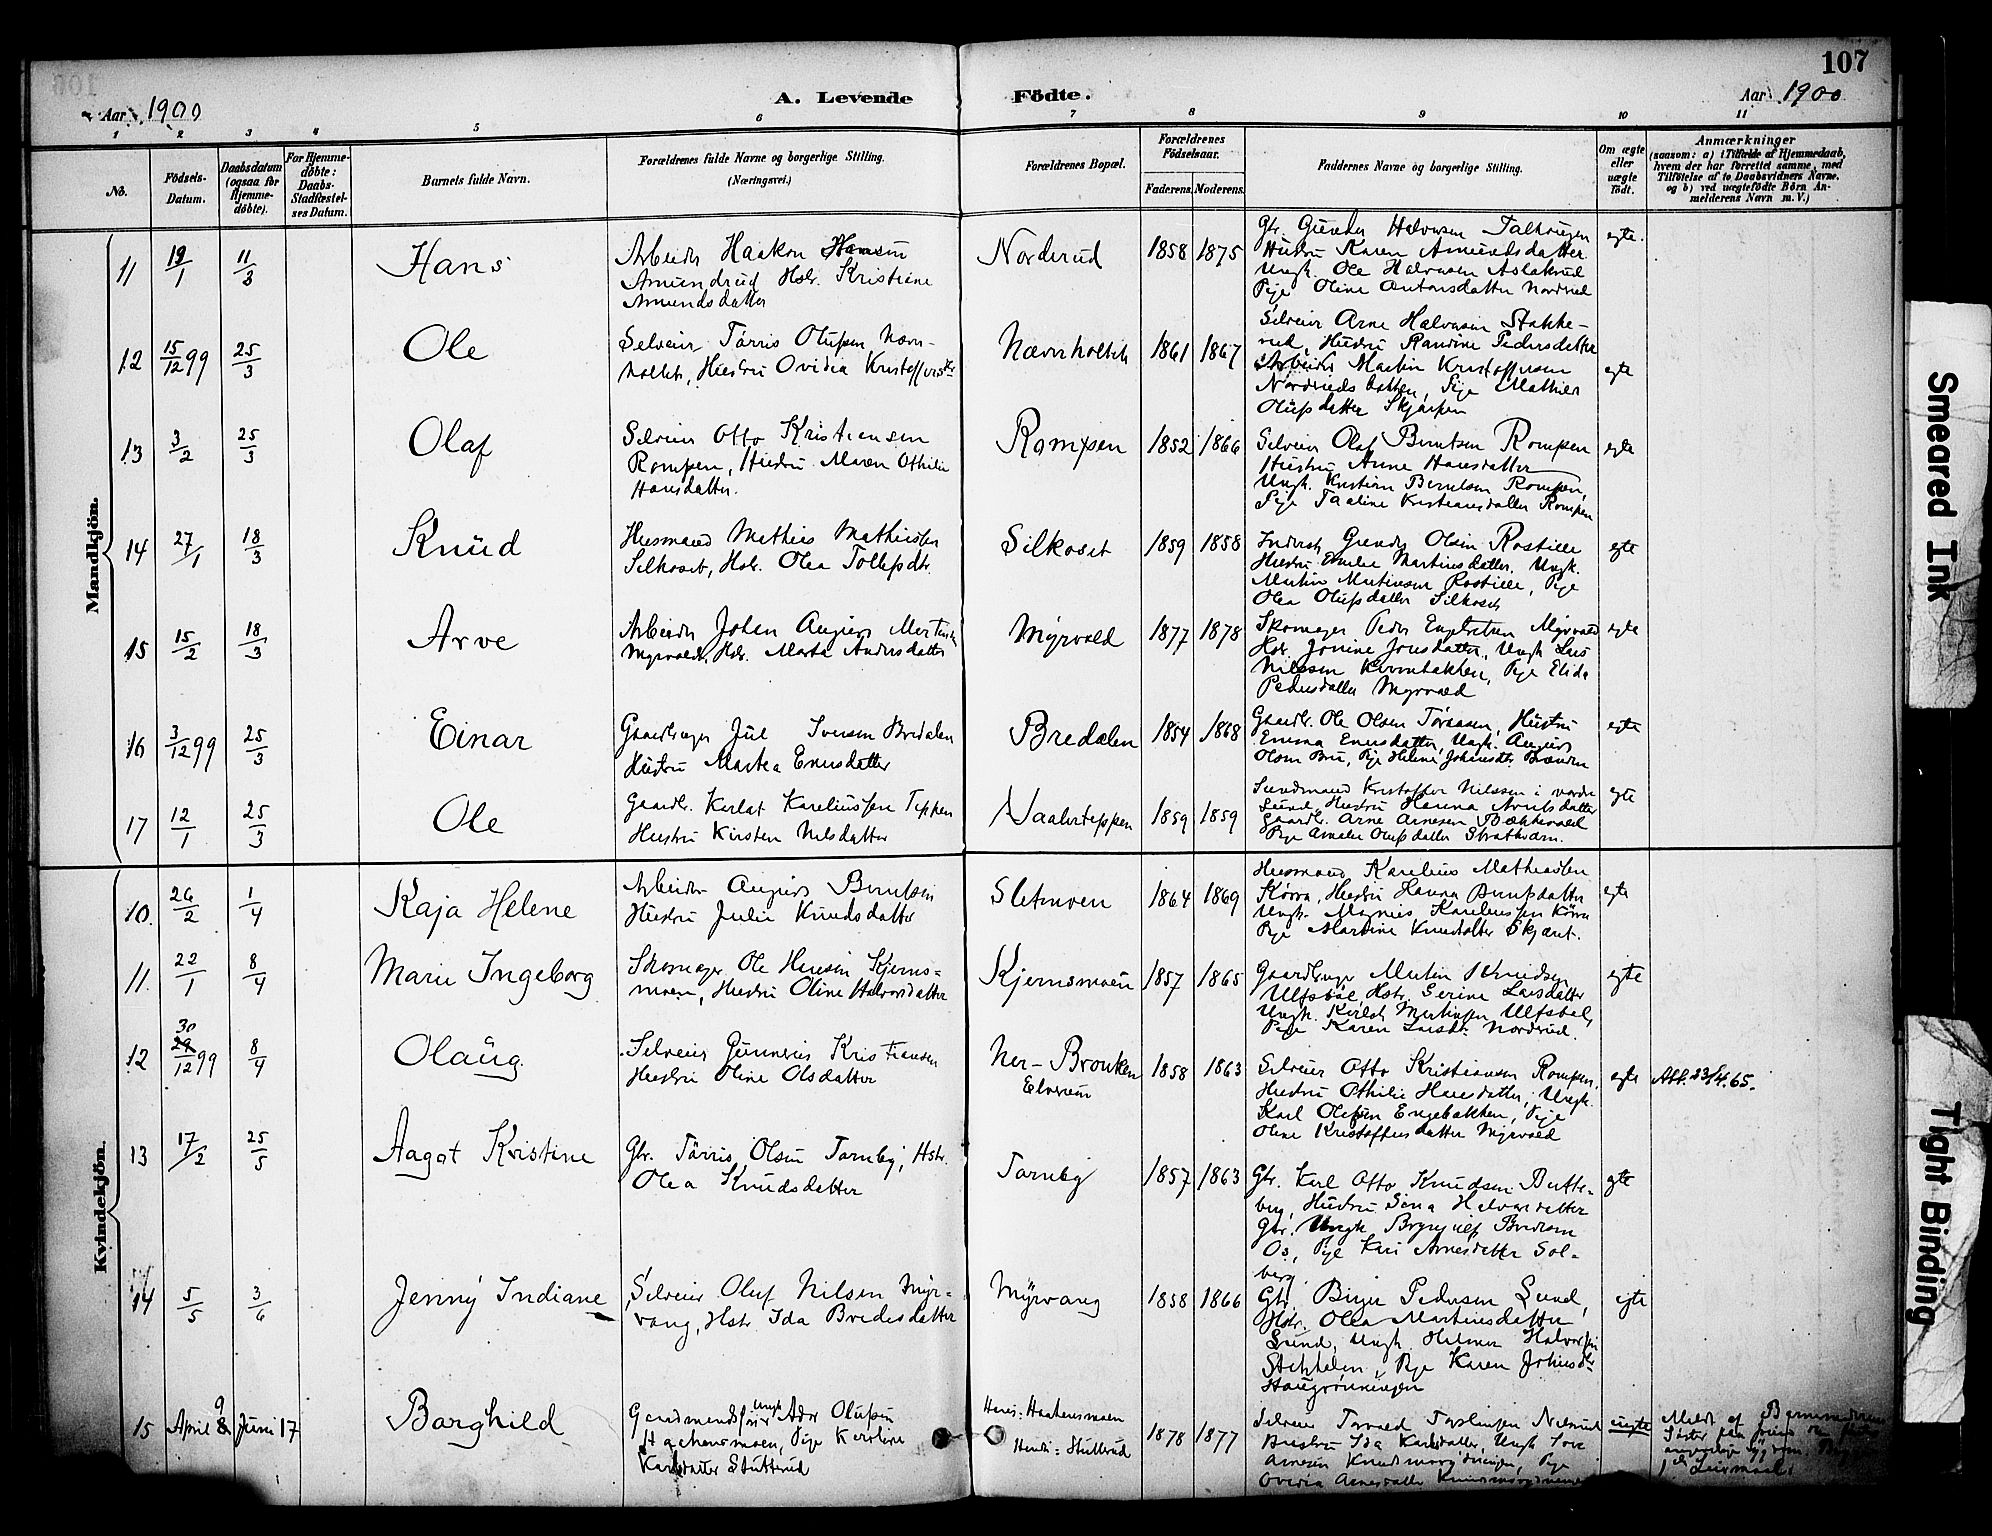 107
Aar 1900
A. Levende Fødte.
Aar 1900
1 2 3 4 5 6 7 8 9 10 11
No.
Födsels-Datum.
Daabsdatum (ogsaa for Hjemmedöbte).
For Hjemmedöbte: Daabs-Stadfæstelses Datum.
Barnets fulde Navn.
Forældrenes fulde Navne og borgerlige Stilling. (Næringsvei.)
Forældrenes Bopæl.
Forældrenes Födselsaar.
Faderens. Moderens.
Faddernes Navne og borgerlige Stilling.
Om ægte eller uægte födt.
Anmærkninger
(saasom: a) i Tilfælde af Hjemmedaab, hvem der har forrettet samme, med Tilföielse af to Daabsvidners Navne, og b) ved uægtefödte Börn Anmelderens Navn m. V.)
Mandkjön.
11 19/1 11/3 Hans
Arbeider Haakon Hansen
Amundrud Hstr. Kristiane
Amundsdatter
Norderud 1858 1875
Gbr. Gunder Halvorsen
Hustru Karen Amundsdatter
Ungk. Ole Halvorsen Aslakrud
Pige Oline Antonsdatter Nordrud
egte.
12 15/12 99 25/3 Ole
Selveier Tørris Olufsen Navn-
holtet, Hustru Ovidia Kristoffersdtr
Navnholtet 1861 1867
Selveier Arne Halvorsen Stakke-
rud, Hustru Randine Pedersdatter
Arbeider Martin Kristoffersen
Nordrudsbakken, Pige Mathea
Olufsdatter Skjærpen
egte
13 3/2 25/3 Olaf
Selveier Otto Kristiansen
Rompen, Hustru Maren Othilie
Hansdatter.
Rompen 1852 1866
Selveier Olaf Berntsen Rompen
Hustru Anne Hansdatter
Ungk. Kristian Berntsen Rompen,
Pige Taaline Kristiansdatter Rompen
egte
14 27/1 18/3 Knud
Husmand Mathis Mathisen
Silkoset, Hstr. Olea Tollefsdtr.
Silkoset 1859 1858
Inderst Gunder Olsen
Hustru Emilie Martinsdatter, Ungk.
Martin Martinsen, Pige
Olea Olufsdatter Silkoset
egte
15 15/2 18/3 Arve
Arbeider Johan August Mortensen
Myrvold, Hstr. Marta Andersdatter
Myrvold 1877 1878
Skomager Peder Engebretsen Myrvold
Hstr. Jonine Jonsdatter, Ungk Lars
Nilssen Kvernbakken, Pige Elida
Pedersdatter Myrvold
egte
16 3/12 99 25/3 Einar
Gaardbruger Jul Iversen Bredalen
Hustru Martea Enersdatter
Bredalen 1854 1868
Gaardbr. Ole Olsen Tøraasen, Hustru
Emma Enersdatter, Ungk. August
Olsen Bru, Pige Helene Johansdtr. Brænden
egte
17 12/1 25/3 Ole
Gaardbr. Kerlat Kareliussen Teppen
Hustru Kirsten Nilsdatter
Vaalerteppen 1859 1859
Sundmand Kristoffer Nilssen i nordre
Sund, Hustru Hanna Arntsdatter
Gaardb. Arne Arnesen Bækkevold
Pige Amalie Olufsdatter
egte
Kvindekjön.
10. 26/2 1/4 Kaja Helene
Arbeider August Berntsen
Hustru Julie Knudsdatter
Sletmoen 1864 1869
Husmand Karelius Mathiassen
Kørra, Hustru Hanna Berntsdatter
Ungk. Magnus Kareliussen Kørra
Pige Martine Knudsdatter Skjæret.
egte
11. 22/1 8/4 Marie Ingeborg
Skomager Ole Hansen Kjerns-
moen, Hustru Oline Halvorsdatter
Kjernsmoen 1857 1865
Gaardbruger Martin Knudsen
Ulfsbøl, Hstr. Serine Larsdatter
Ungk. Kerlat Martinsen Ulfsbøl,
Pige Karen Larsdtr Nordrud.
egte
12 30 29/12 99 8/4 Olaug.
Selveier Gunnerius Kristiansen
Hustru Oline Olsdatter
Ner-Brouken
Elverum
1858 1863
Selveier Otto Kristiansen Rompen,
Hustru Othilie Hansdatter, Ungk.
Karl Olufsen Engebakken, Pige
Oline Kristoffersdatter Myrvold
egte Att. 23/4.65.
13 17/2 25/5 Aagot Kristine
Gbr. Tørris Olsen Tornby, Hstr.
Olea Knudsdatter
Tornby 1857 1863
Gbr. Karl Otto Knudsen Butte-
berg, Hustru Sina Halvorsdatter
Gbr. Ungk. Brynjulf Bredesen
Os, Pige Kari Arnesdatter Sol-
berg.
egte
14 5/5 3/6 Jenny Indiane
Selveier Oluf Nilsen Myr-
vang, Hstr. Ida Bredesdatter
Myrvang 1858 1866
Gbr. Birger Pedersen Lund,
Hstr. Olea Martinsdatter
Lund, Ungk Helmer Halvorsen
Stekkelen, Pige Karen Johnsdtr
egte
15 April 9 Juni 17 Borghild
Gaardmandssøn Ungk Ador Olufsen
Haakensmoen, Pige Karoline
Karlsdatter Stutterud
Hans: Haakensmoen
Hendes: Stutterud
1878 1877
Selveier Torvald Torstensen
Hustru Ida Karlsdatter, Ungk Tore
Arnesen, Pige
Ovidia Arnesdatter
uegte
Meldt af Barnemoderens
Søster
1ste Leiermaal
Smeared Ink
Tight Binding